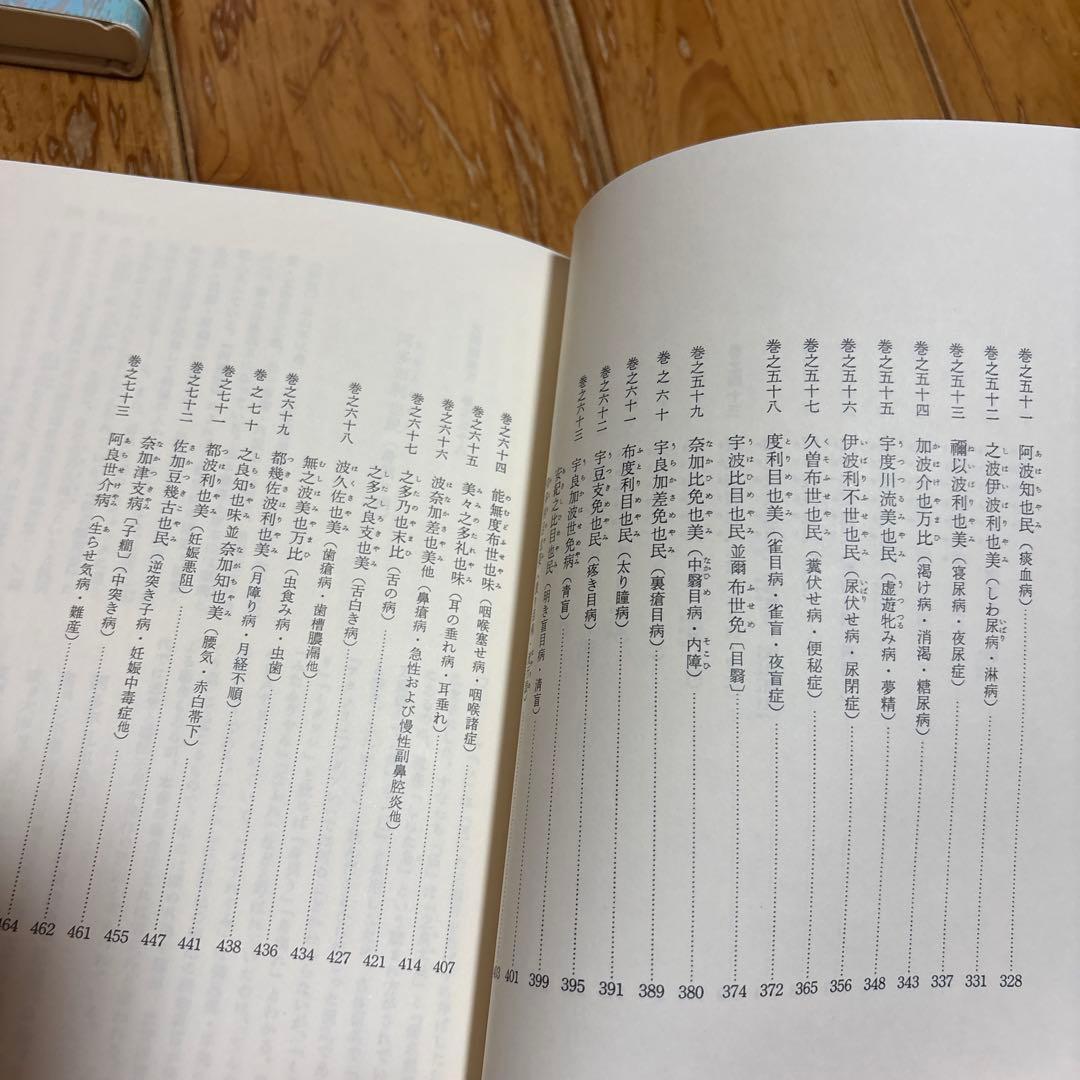 巻之五十一 阿波知也民（痰血病）……328
巻之五十二 之波伊波利也美（しわ尿病・淋病）……331
巻之五十三 禰以波利也美（寝尿病・夜尿症）……337
巻之五十四 加波介也万比（渇け病・消渇・糖尿病）……343
巻之五十五 宇度川流美也民（虚遊牝み病・夢精）……348
巻之五十六 伊波利不世也民（尿伏せ病・尿閉症）……356
巻之五十七 久曽布世也美（糞伏せ病・便秘症）……365
巻之五十八 度利目也美（雀目病・雀盲・夜盲症）……372
宇波比目也民並爾布世免〔目翳〕……374
巻之五十九 奈加比免也美（中翳目病・内障）……380
巻之六十 宇良加差免也民（裏瘡目病）……389
巻之六十一 布度利目也民（太り瞳病）……391
巻之六十二 宇豆支免也民（疼き目病）……395
巻之六十三 宇良加波世免病（青盲）……399
安紀之比目也民（明き盲目病・清盲）……401
403
巻之六十四 能無度布世也味（咽喉塞せ病・咽喉諸症）……407
巻之六十五 美々之多礼也味（耳の垂れ病・耳垂れ）……
巻之六十六 波奈加差也美他（鼻瘡病・急性および慢性副鼻腔炎他）……
巻之六十七 之多乃也末比（舌の病）……414
之多之良支也美（舌白き病）……421
巻之六十八 波久佐也美（歯瘡病・歯槽膿漏他）……427
無之波美也万比（虫食み病・虫歯）……434
巻之六十九 都幾佐波利也美（月障り病・月経不順）……436
巻之七十 之良知也味並奈加知也美（腰気・赤白帯下）……438
巻之七十一 都波利也美（妊娠悪阻）……441
巻之七十二 佐加豆幾古也民（逆突き子病・妊娠中毒症他）……447
奈加津支病〔子癇〕（中突き病）……455
巻之七十三 阿良世介病（生らせ気病・難産）……461
462
464